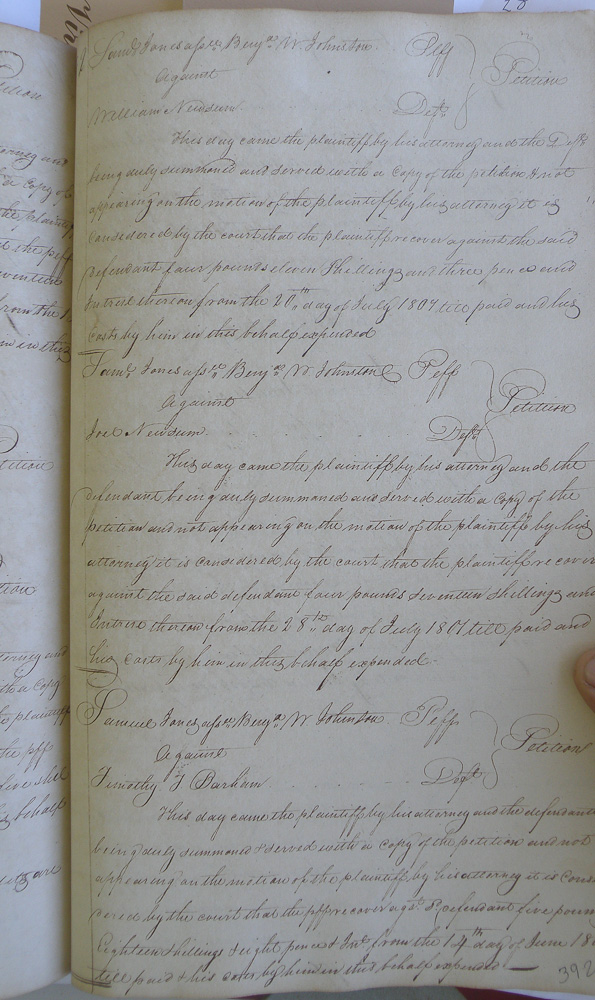 Saml Jones assee Benja W. Johnston .. Peff
Petition
Against
William Newsum .. Deft
This day came the plaintiff by his attorney and the Deft
being duly summoned and served with a Copy of the petition & not
appearing on the motion of the plaintiff by his attorney it is
Considered by the court that the plaintiff recover against the said
defendant four pounds eleven Shillings and three pence and
Intrest thereon from the 20th day of July 1807 till paid and his
Costs by him in this behalf expended
Saml Jones assee Benja W Johnston Peff
Petition
Against
Joel Newsum Deft
This day came the plaintiff by his attorney and the
defendant being duly summoned and served with a Copy of the
petition and not appearing on the motion of the plaintiff by his
attorney it is considered by the court that the plaintiff recover
against the said defendant four pounds seventeen shillings and
Intrest thereon from the 28th day of July 1807 till paid and
his Costs by him in this behalf expended.
Samuel Jones assee Benja W Johnston Peff
Petition
Against
Timothy T Barham Deft
This day came the plaintiff by his attorney and the defendant
being duly summoned & served with a copy of the petition and not
appearing on the motion of the plaintiff by his attorney it is Consi
dered by the court that the pff recover agst Defendant five poun
Eighteen shillings & eight pence & Int from the 14th day of June 18
till paid & his costs by him in this behalf expended
392